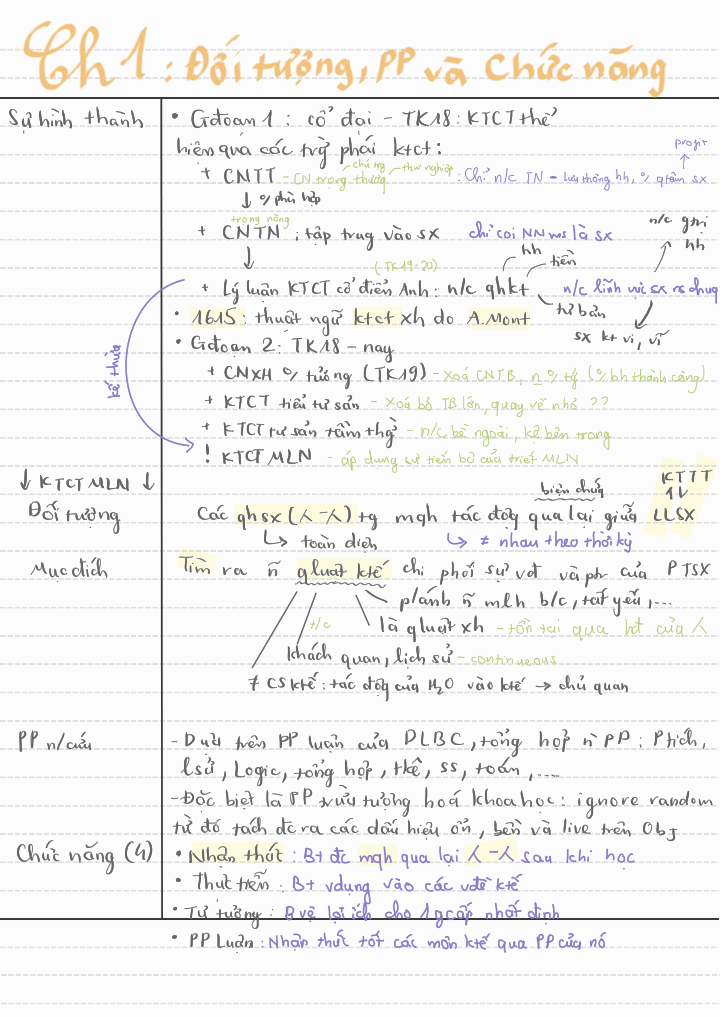 Ch1: Đối tượng, PP và Chức năng
Sự hình thành
• Gđoạn 1: cổ đại - TK18: KTCT thể
hiện qua các trg phái ktct:
profit
↑
chú ng
thw nghiệp
+ CNTT - CN trọng thương : Chỉ n/c TN - lưu thông hh, % qtâm sx
↓ % phù hợp
trọng nông
+ CNTN : tập trug vào sx chỉ coi NN ms là sx
n/c gtrị
hh
↓
hh
tiền
(TK19-20)
+ Lý luận KTCT cổ điển Anh: n/c qhkt
tư bản
n/c lĩnh vực sx ns chug
sx kt vi, vĩ
• 1615: thuật ngữ ktct xh do A.Mont
• Gđoạn 2: TK18 - nay
kế thừa
+ CNXH % tưởng (TK19) - Xoá CNTB, n % tg (% bh thành công)
+ KTCT tiểu tư sản - Xoá bỏ TB lớn, quay về nhỏ ??
+ KTCT tư sản tầm thg - n/c bề ngoài, kể bên trong
! KTCT MLN - áp dụng sự tiến bộ của triết MLN
↓ KTCT MLN ↓
KTTT
↑↓
biện chứg
Đối tượng
Các qhsx (人-人) tg mqh tác độg qua lại giữa LLSX
↳ toàn diện
↳ ≠ nhau theo thời kỳ
Mục đích
Tìm ra ñ qluật ktế chi phối sự vđ và ptr của PTSX
p/ánh ñ mlh b/c, tất yếu,...
t/c
là qluật xh - tồn tại qua hđ của 人
khách quan, lịch sử - continueous
≠ CS ktế: tác độg của H₂O vào ktế → chủ quan
PP n/cứu
- Dựa trên PP luận của DLBC, tổng hợp ñ PP: Ptích,
lsử, Logic, tổng hợp, tkê, ss, toán,....
- Đặc biệt là PP trừu tượng hoá khoa học: ignore random
từ đó tách đc ra các dấu hiệu ổn, bền và live trên Obj
Chức năng (4)
• Nhận thức: B+ đc mqh qua lại 人-人 sau khi học
• Thực tiễn: B+ vdụng vào các vđề ktế
• Tư tưởng: Bvệ lợi ích cho 1 gcấp nhất định
• PP Luận: Nhận thức tốt các môn ktế qua PP của nó